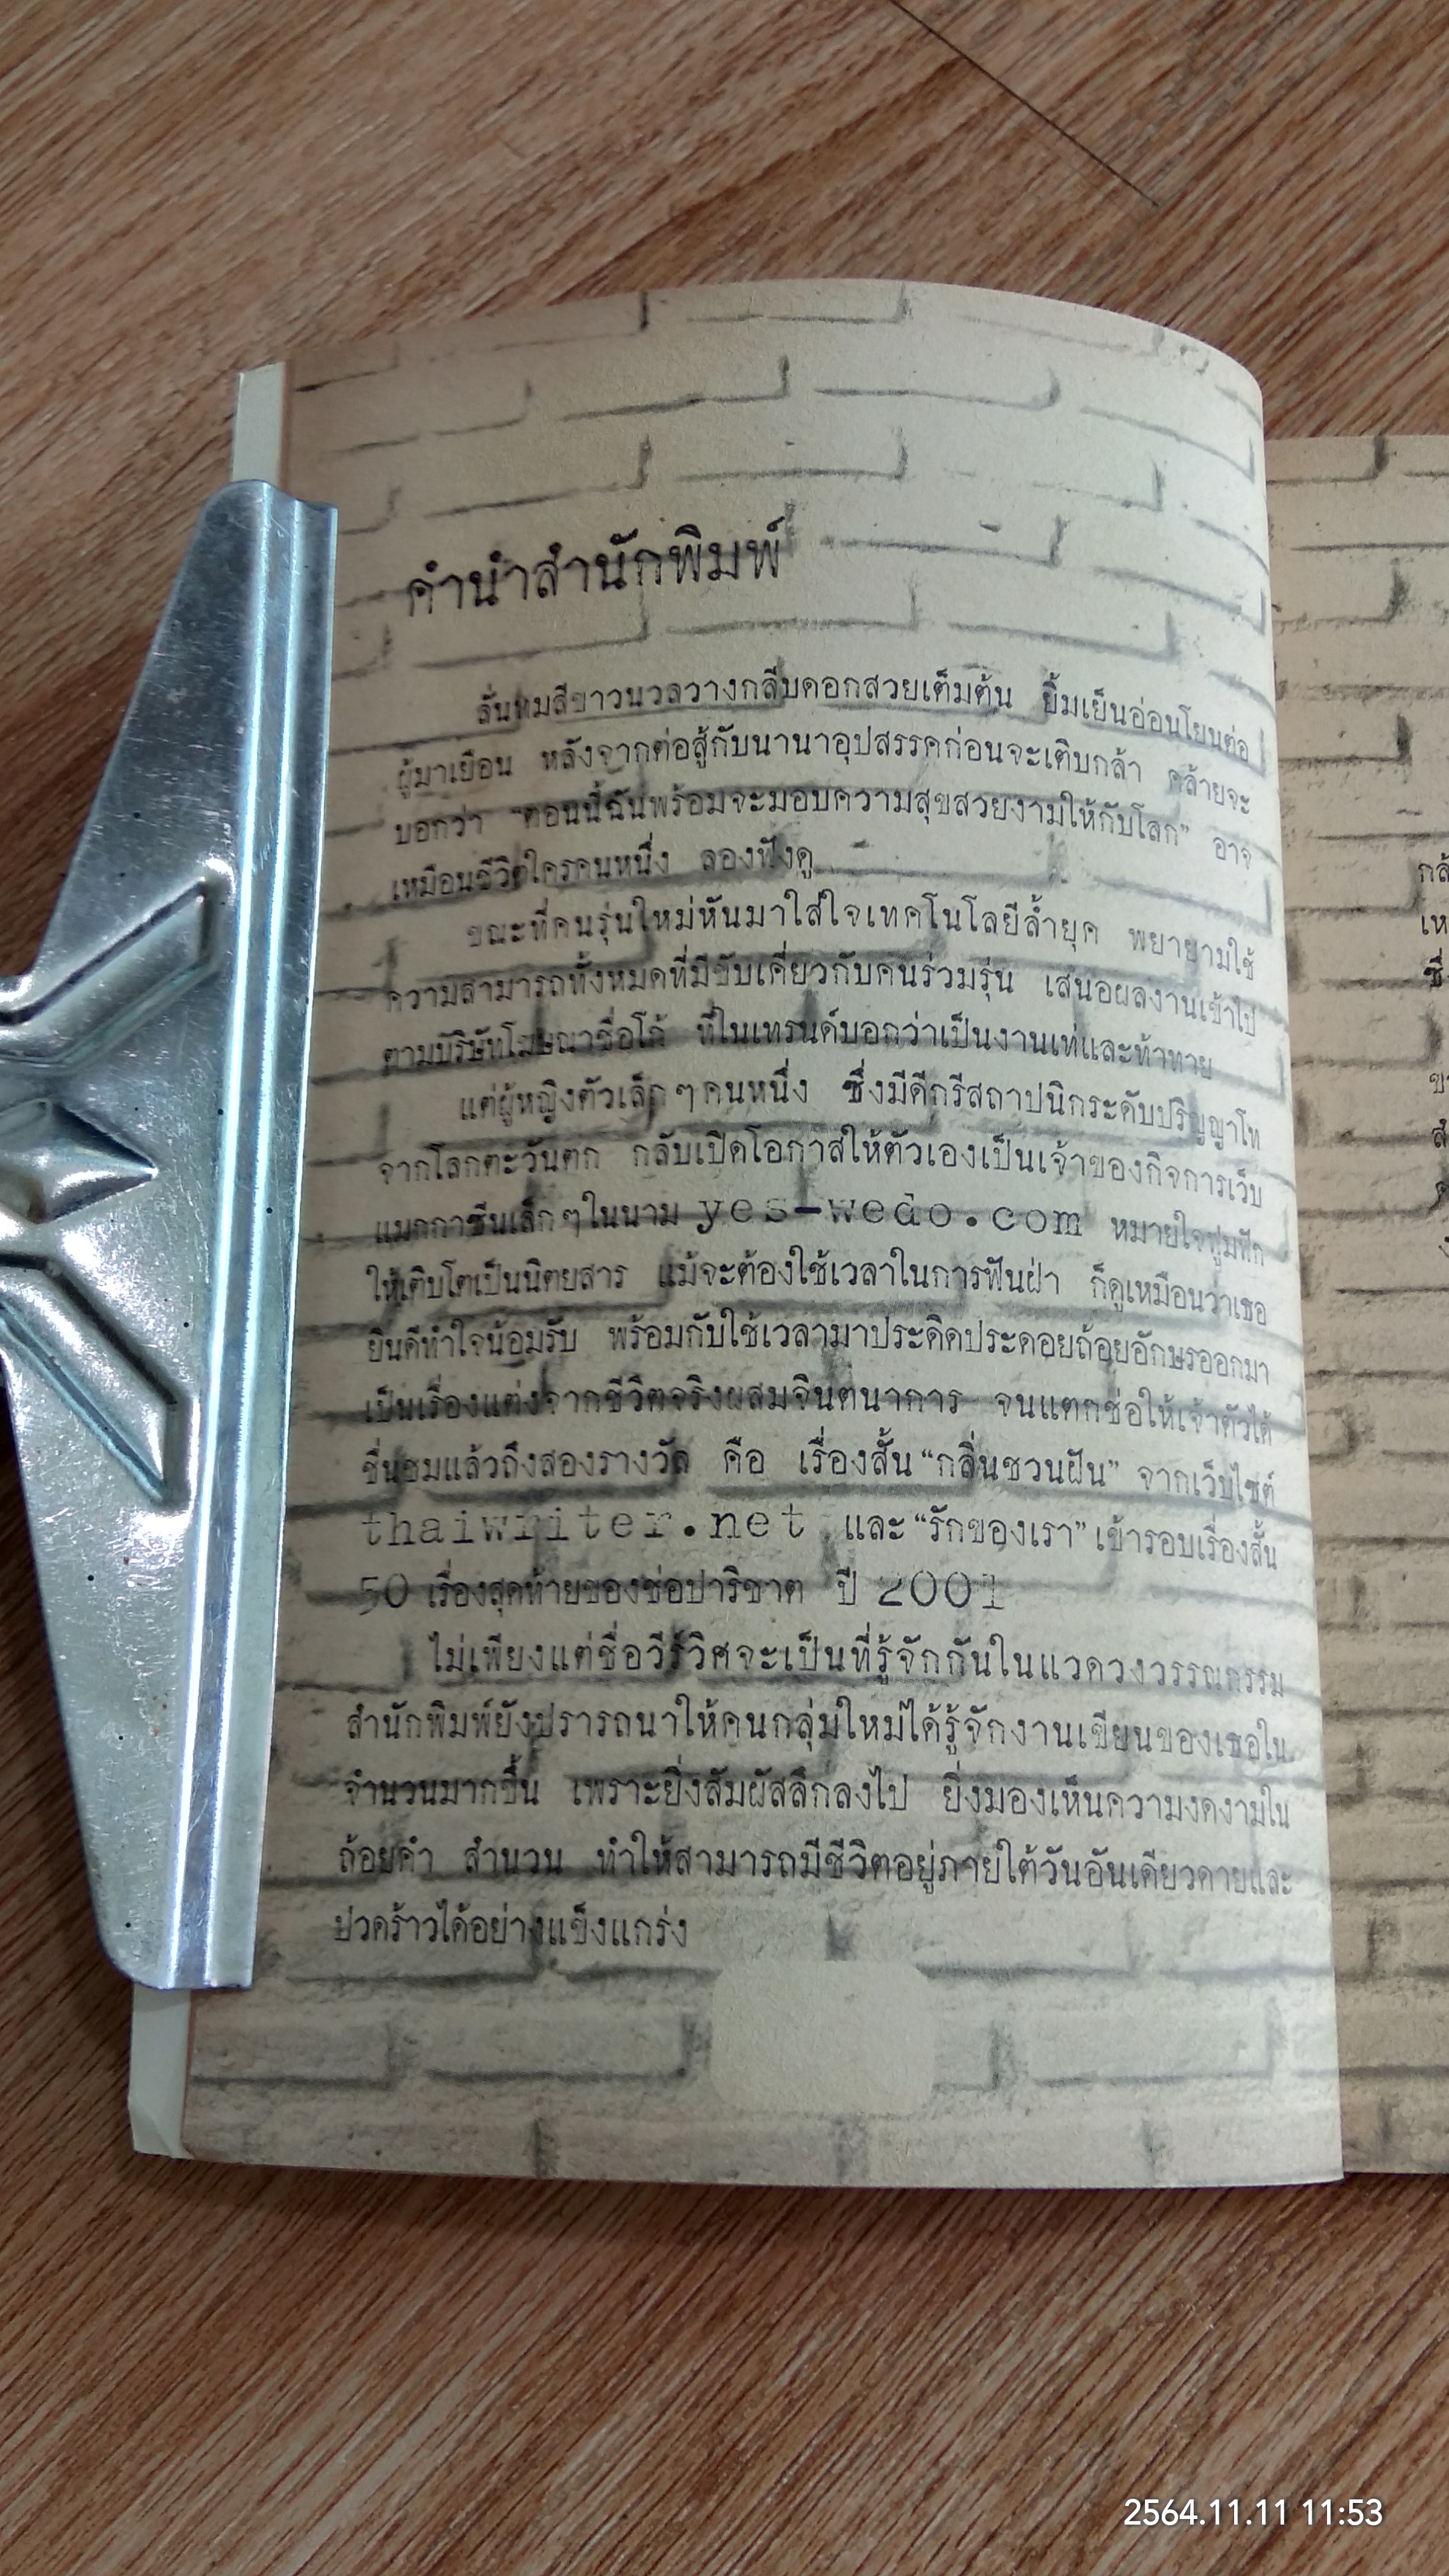 คำนำสำนักพิมพ์
ลั่นทมสีขาวนวลวางกลีบดอกสวยเต็มต้น ยิ้มเย็นอ่อนโยนต่อ
ผู้มาเยือน หลังจากต่อสู้กับนานาอุปสรรคก่อนจะเติบกล้า คล้ายจะ
บอกว่า “ตอนนี้ฉันพร้อมจะมอบความสุขสวยงามให้กับโลก” อาจ
เหมือนชีวิตใครคนหนึ่ง ลองฟังดู
ขณะที่คนรุ่นใหม่หันมาใส่ใจเทคโนโลยีล้ำยุค พยายามใช้
ความสามารถทั้งหมดที่มีขับเคี่ยวกับคนร่วมรุ่น เสนอผลงานเข้าไป
ตามบริษัทโฆษณาชื่อโก้ ที่ในเทรนด์บอกว่าเป็นงานเท่และท้าทาย
แต่ผู้หญิงตัวเล็กๆคนหนึ่ง ซึ่งมีดีกรีสถาปนิกระดับปริญญาโท
จากโลกตะวันตก กลับเปิดโอกาสให้ตัวเองเป็นเจ้าของกิจการเว็บ
แมกกาซีนเล็กๆในนาม yes-wedo.com หมายใจฟูมฟัก
ให้เติบโตเป็นนิตยสาร แม้จะต้องใช้เวลาในการฟันฝ่า ก็ดูเหมือนว่าเธอ
ยินดีทำใจน้อมรับ พร้อมกับใช้เวลามาประดิดประดอยถ้อยอักษรออกมา
เป็นเรื่องแต่งจากชีวิตจริงผสมจินตนาการ จนแตกช่อให้เจ้าตัวได้
ชื่นชมแล้วถึงสองรางวัล คือ เรื่องสั้น “กลิ่นชวนฝัน” จากเว็บไซต์
thaiwriter.net และ “รักของเรา” เข้ารอบเรื่องสั้น
50 เรื่องสุดท้ายของช่อปาริชาต ปี 2001
ไม่เพียงแต่ชื่อวีร์วิศจะเป็นที่รู้จักกันในแวดวงวรรณกรรม
สำนักพิมพ์ยังปรารถนาให้คนกลุ่มใหม่ได้รู้จักงานเขียนของเธอใน
จำนวนมากขึ้น เพราะยิ่งสัมผัสลึกลงไป ยิ่งมองเห็นความงดงามใน
ถ้อยคำ สำนวน ทำให้สามารถมีชีวิตอยู่ภายใต้วันอันเดียวดายและ
ปวดร้าวได้อย่างแข็งแกร่ง
2564.11.11 11:53